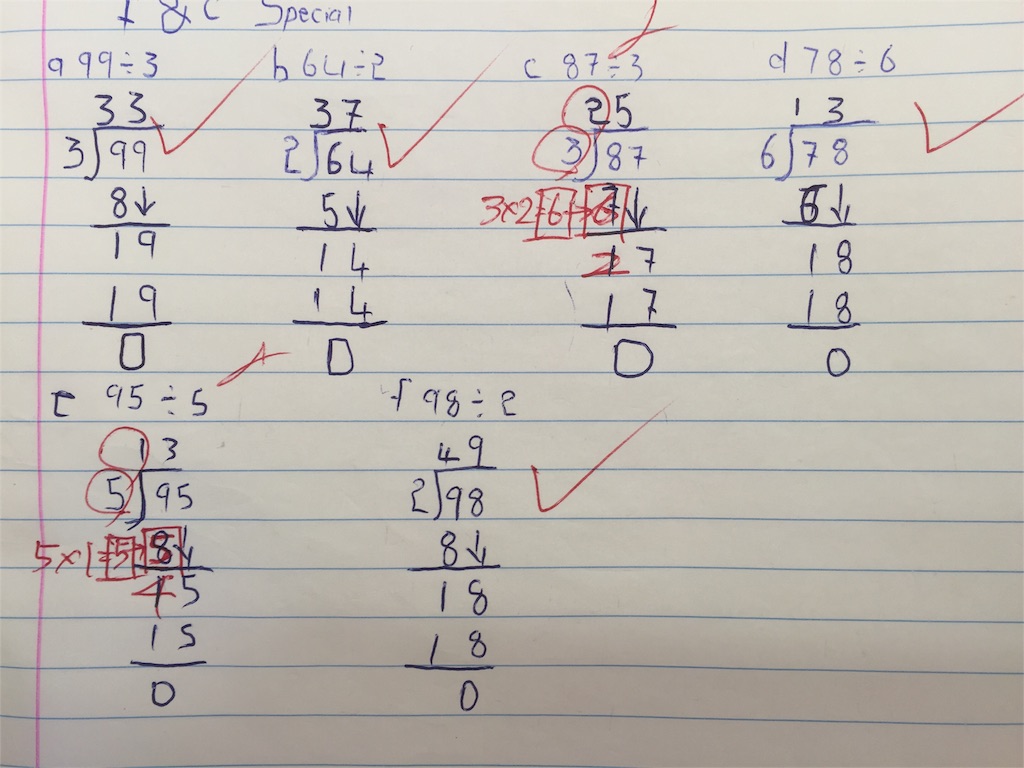 I & C Special
a 99÷3 b 64÷2 c 87÷3 d 78÷6
33 37 25 13
3)99 2)64 3)87 6)78
8↓ 5↓ 3×2=6→6↓ 6↓
19 14 27 18
19 14 17 18
0 0 0 0
E 95÷5 f 98÷2
13 49
5)95 2)98
5×1=5→8↓ 8↓
45 18
15 18
0 0